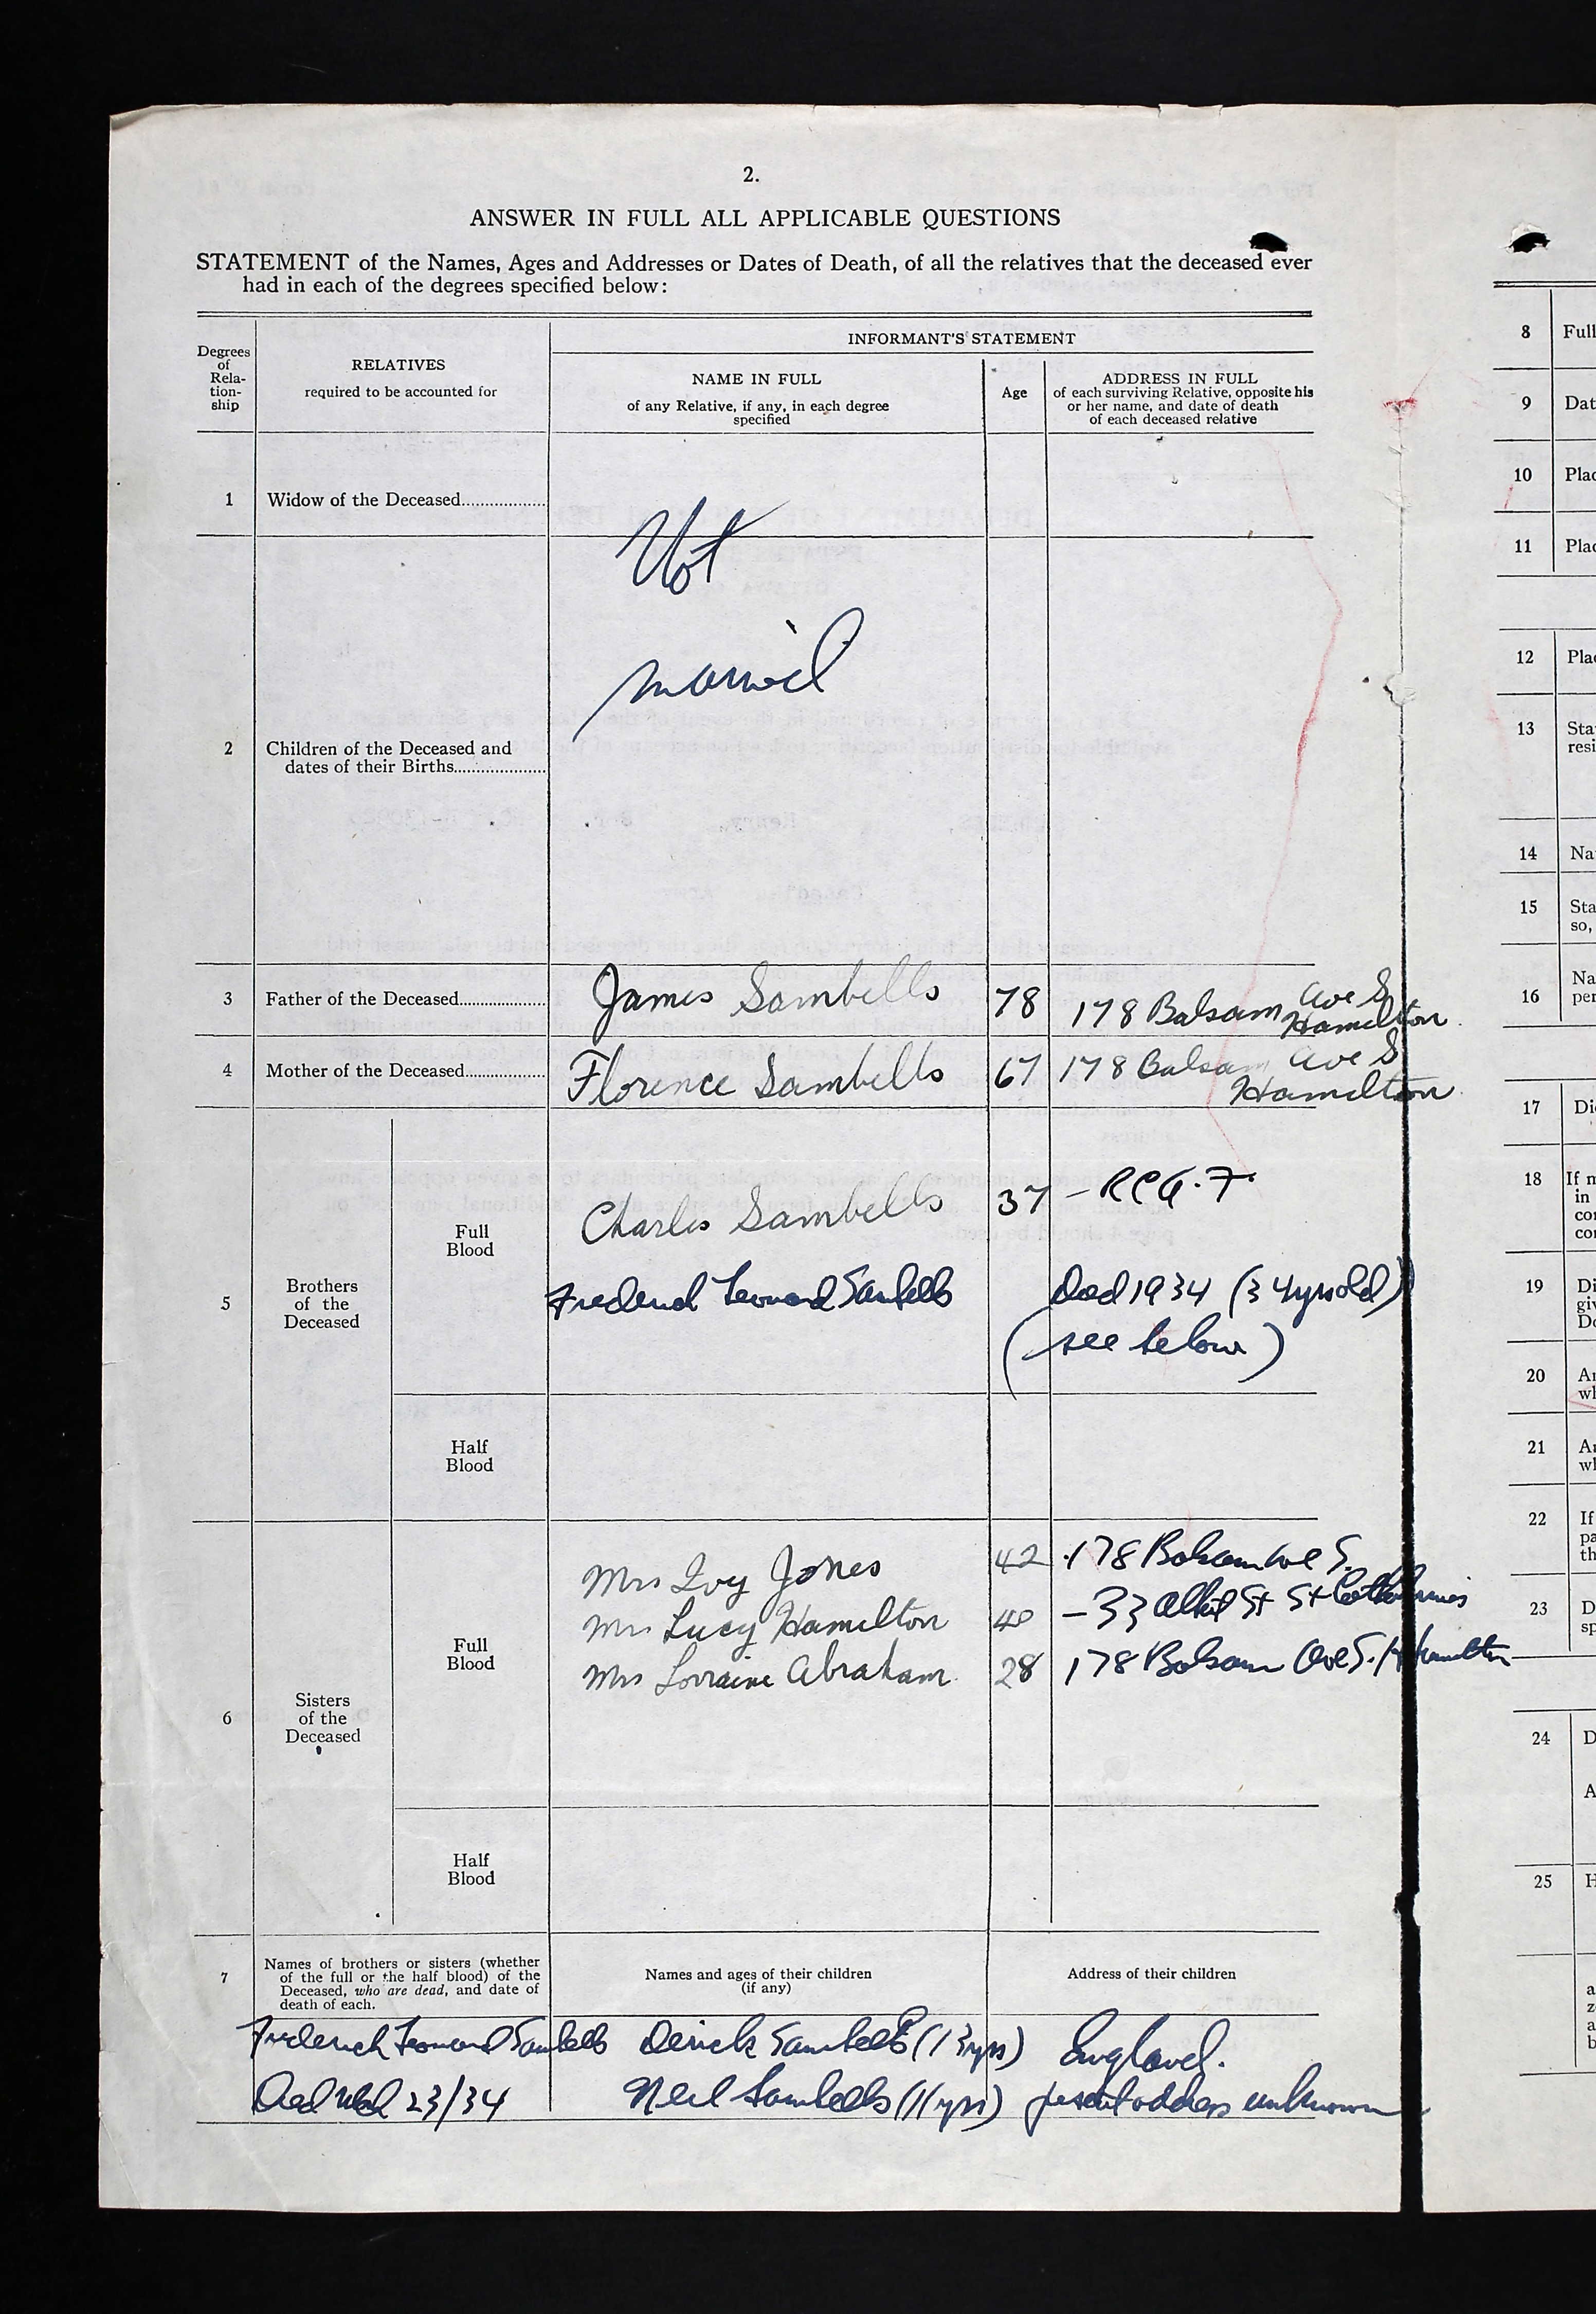 2.
ANSWER IN FULL ALL APPLICABLE QUESTIONS
STATEMENT of the Names, Ages and Addresses or Dates of Death, of all the relatives that the deceased ever
had in each of the degrees specified below:
Degrees
of
Rela-
tion-
ship
RELATIVES
required to be accounted for
INFORMANT'S STATEMENT
NAME IN FULL
of any Relative, if any, in each degree
specified
Age
ADDRESS IN FULL
of each surviving Relative, opposite his
or her name, and date of death
of each deceased relative
1 Widow of the Deceased
Not
married
2 Children of the Deceased and
dates of their Births
3 Father of the Deceased James Sambells 78 178 Balsam Ave S
Hamilton
4 Mother of the Deceased Florence Sambells 67 178 Balsam Ave S
Hamilton
5 Brothers
of the
Deceased
Full
Blood
Charles Sambells 37 - RCA.F.
Frederick Leonard Sambells Died 1934 (34 yrs old)
(see below)
Half
Blood
6 Sisters
of the
Deceased
Full
Blood
Mrs Ivy Jones 42 178 Balsam Ave S.
Mrs Lucy Hamilton 40 - 33 St St Catharines
Mrs Lorraine Abraham 28 178 Balsam Ave S. Hamilton
Half
Blood
7 Names of brothers or sisters (whether
of the full or the half blood) of the
Deceased, who are dead, and date of
death of each.
Names and ages of their children
(if any)
Address of their children
Frederick Leonard Sambells Derick Sambells (13 yrs) England.
Died 23/34 Neil Sambells (11 yrs) present address unknown
8 Full
9 Dat
10 Plac
11 Plac
12 Plac
13 Sta
resi
14 Na
15 Sta
so,
16 Na
per
17 Di
18 If m
in
co
co
19 Di
giv
Do
20 An
wh
21 An
wh
22 If
pa
th
23 D
sp
24 D
A
25 H
a
z
a
b